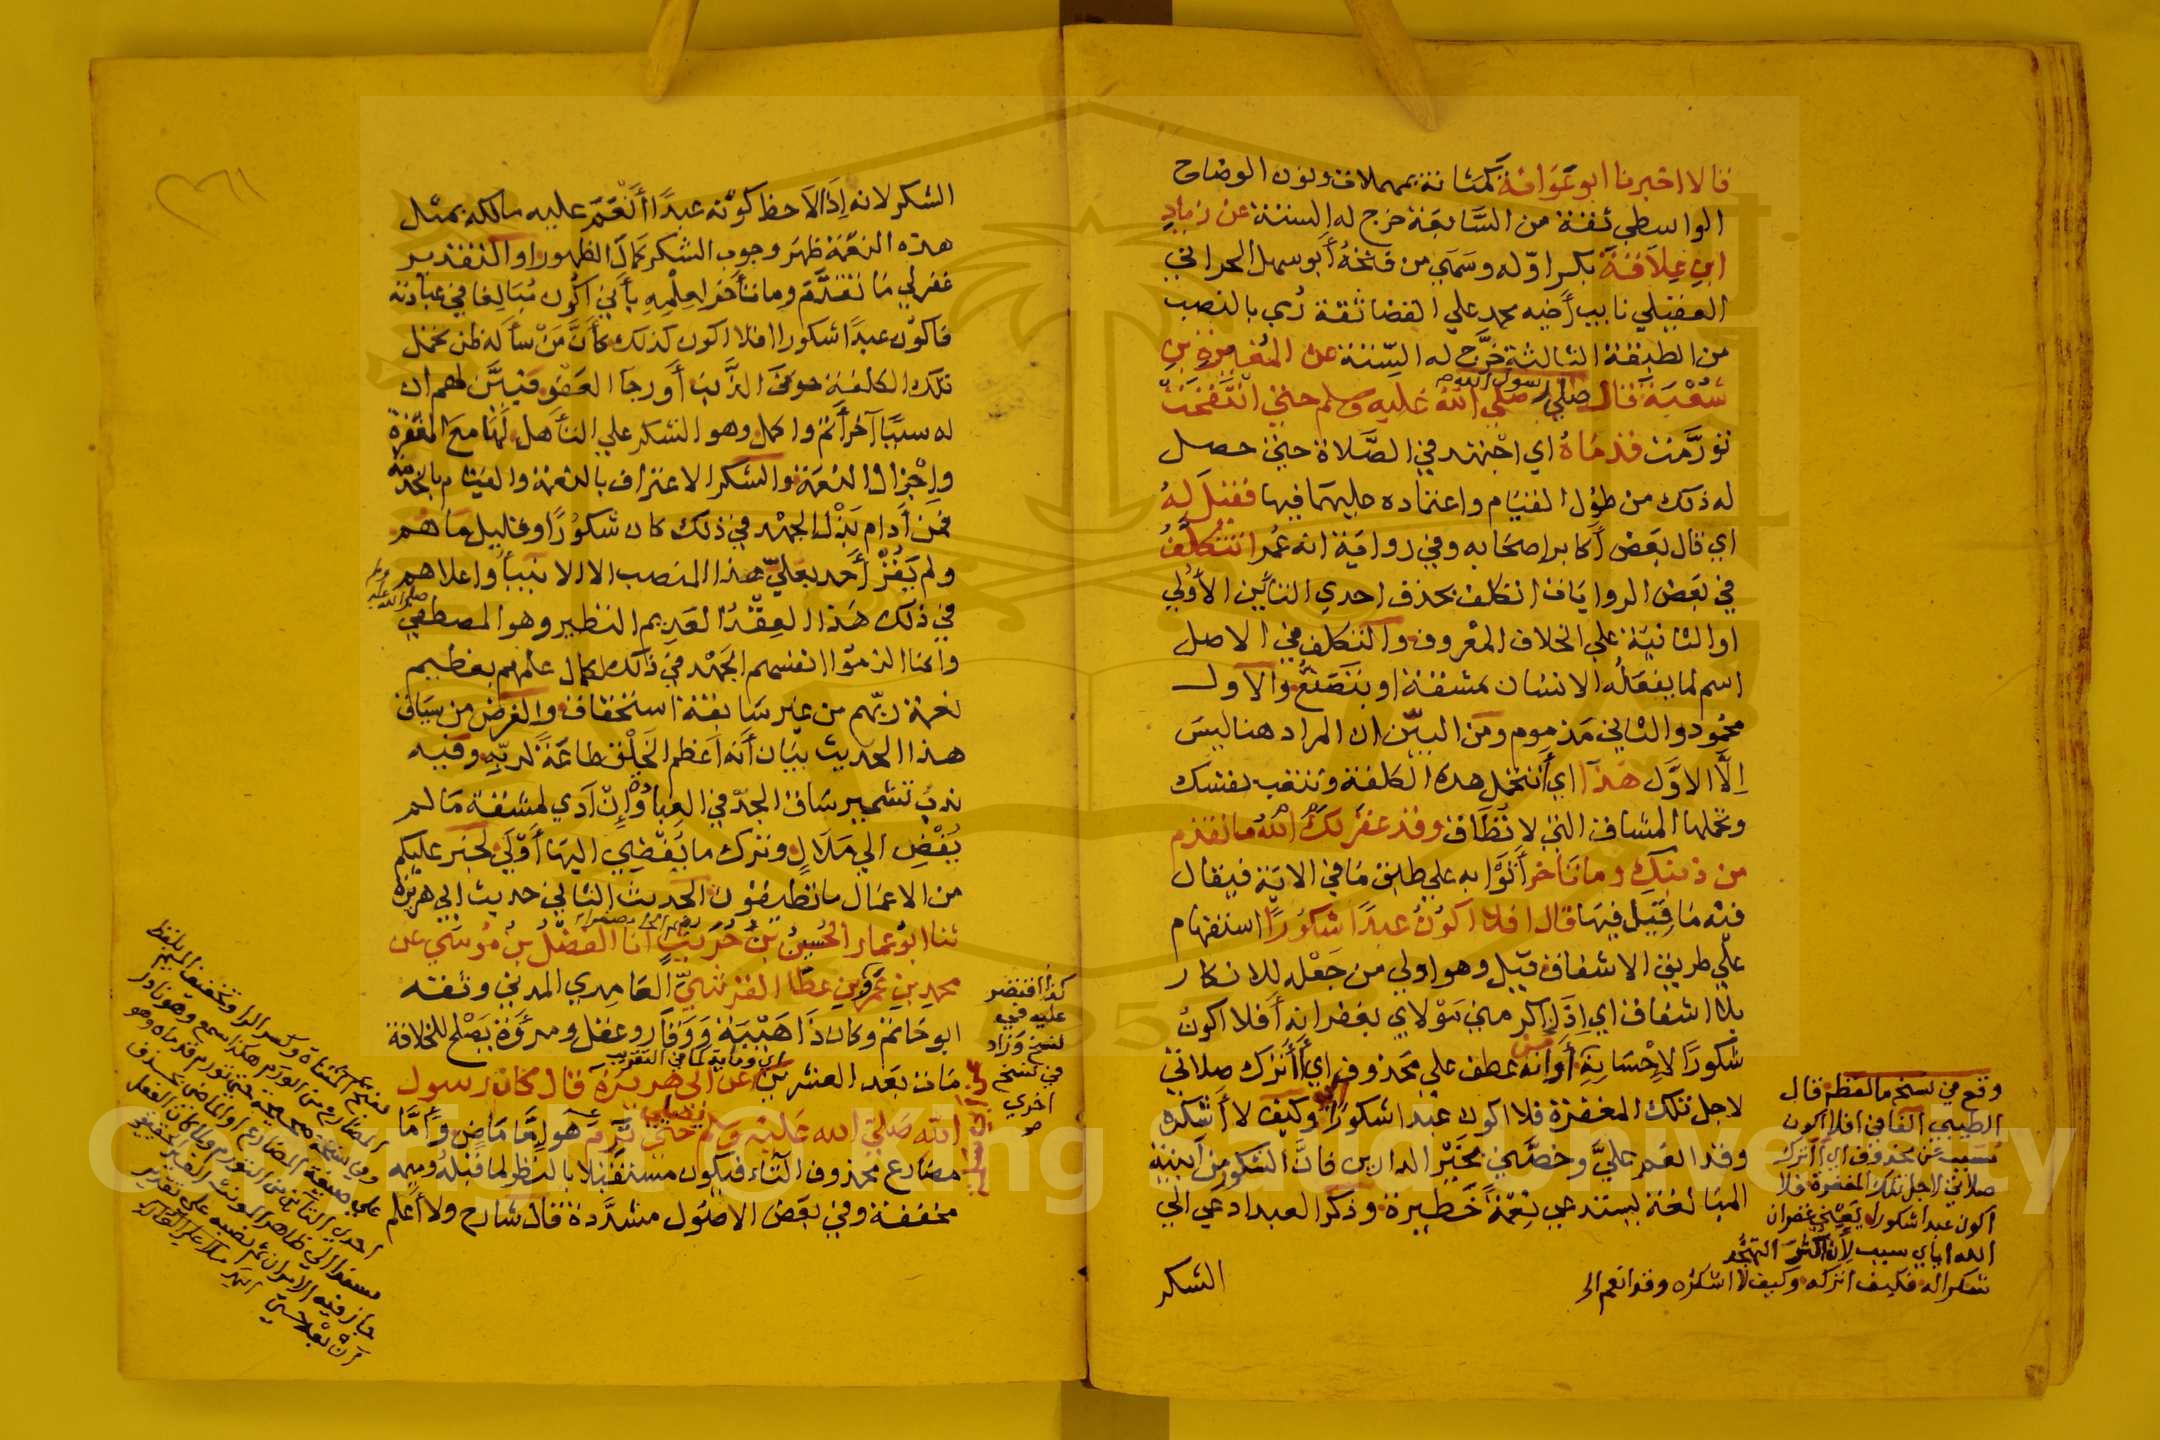 قالا اخبرنا ابو عَوَانة كمثانة بمهملات ونون الوضاح
الواسطي ثقة من السَّابعَة خرج له الستة عن زياد
ابن عِلَاقة بكسر اوّله وسَمي من فتحهُ أبو سهل الحراني
العقيلي نايب أخيه محمد علي القضا ثقة رُمي بالنصب
من الطبقة الثالثة خَرَّج له السِّتة عن المُغيرة بن
شُعْبَة قال صَلّي رسول الله صلي الله عليه وسلم حتي انتَفَخَتْ
تورَّمت قدمَاهُ اي اجْتهد في الصَّلاة حتي حصل
له ذلك من طُول القيَام واعتماده عليهمَا فيها فقيلَ لهُ
اي قال بَعض أكابر اصحَابه وفي روايَة انه عُمر اتتكلَّفُ
في بَعض الروايَات اتكلف بحذف احدي التأين الأولي
او الثانيَة علي الخلاف المعْروف والتكلف في الاصل
اسم لما يفعَلُه الانسَان بمشقة او بتَصَنّعُ والأول
محمُود والثاني مَذموم ومن البيّن ان المراد هنا ليسَ
اِلَّا الاوَّل هَذَا اي أتتحمل هذه الكلفة وتتعب نفسَك
وتحملها المشاق التي لا تُطَاق وقد غفرَ لكَ اللهُ ما تقدم
من ذنبكَ وما تأخر أتَوْا به علي طبق مَا في الاية فيقال
فيه مَا قِيَل فيهَا قال افلا اكونُ عبدًا شكُورًا استفهَام
علَي طريق الاشفاق قيل وهو اولي من جَعْله للانكار
بلا اشفاق اي اِذَا اكرمني مَوْلاي بغفرانه أفلا اكونُ
شكورًا لاِحْسَانِهِ أوانه عطف علي محَذوف اي أأترك صلاتي
لاجل تلك المغفرة فلا اكون عبدا شكورًا وكيْفَ لا أشكره
وقد انعَم عليَّ وخصَّني بخَيْر الدارين فانَّ الشكور من أبنيَة
المبَالغة يستدعي نِعْمَةً خَطِيرة وذكر العبد ادعي الي
الشكر
وقع في نسخ ما لفظه قال
الطيبي الفا في افلا اكون
مسبب عن محذوف اي أاترك
صلاتي لاجل تلك المغفرة فلا
اكون عبدا شكورا يَعْني غفران
الله اياي سبب لِأن اكثر التهجّد
شكرا له فكيف اتركه وكيف لا اشكره وقد انعم الى
الشكر لانه اِذَا لَاحظ كوْنَه عبدًا أَنْعَمَ عليه مالكه بمثل
هذه النعْمَة ظهَر وجوب الشكر كمَالَ الظهور او التقدير
غفر لي مَا تقدَّمَ وما تأخر لعِلْمِهِ بأني اكُون مُبَالِغا في عبادته
فاكون عبدًا شكورا افلا اكون كذلك كأنَّ مَنْ سأله ظن تحمّل
تلك الكلفة خوفَ الذَّنب أو رجاَ العَفو فبيَّن لهم ان
له سببًا آخر أتم واكمل وهو الشكر علي التأهل لها مع المغفرة
واِجْزال النعمَة والشكر الاعتراف بالنعمة والقيَام بالخدمة
فمَن أدام بَذْل الجهد في ذلك كان شكُورًا وقليل مَا هُم
ولم يَفُزْ أحد بعَليّ هذا المنصب الا الانبيأ واعلاهم
في ذلك هَذا العِقْدُ العَديم النظير وهو المصطفي صلى الله عليه وسلم
وانما الزمُوا انفسهم الجَهْد في ذلك لكمال علمهم بعظيم
نعمَة ربّهم من غير سَابقة استحقاق والغرض من سيَاق
هذا الحديث بيَان أنه أعظم الخَلْق طاعَةً لربّهِ وفيه
ندبُ تشمير سَاق الجدّ في العِبادة وإنْ أدي لمشقة مَا لم
يُفْضِ الي مَلَال وترك ما يُفْضِي اليهَا أوْلَي لخبر عليكم
من الاعمَال ما تطِيقون الحَديث الثاني حديث ابي هريرَة
ثنا ابو عمار الحُسينُ بنُ حُرَيث انا الفضْلُ بنُ مُوسَي عن
محمد بن عَمْرو بن عطا القرشيّ العَامِري المدني وثقه
ابو حَاتم وكان ذَا هَيْبَة وَوَقار وعقل ومرؤة يَصْلح للخلافة
مات بَعْد العشرين عن ابي هريرة قال كان رسول
الله صَلي الله عَليْه وسَلم يُصلي حَتي تَرِمَ هوَ اِمَّا مَاضٍ وَأمَّا
مضارع محذوف التَاء فيَكون مستقبَلا بالنظر لما قبْلهُ وميمه
مخففة وفي بعَض الاصُول مشدَّدة قال شارح ولا أعْلم
ابن ومائة كما في التقريب
كذا اقتصر
عليه في
نسخ وزاد
في نسخ
اخري
بفتح المثناة وكسر الرا وتخفيف الميم بلفظ
المضارع من الورم هكذا سمع وهو نادر
وفي نسخة صحيحة حتي تورم قدماه وهو
علي صيغة المضارع او الماضي بحذف
احدي التأين من التورم ولما كان الفعل
مسندا الي ظاهر المونث الغير الحقيقي
جاز فيه الامران ثم نصبه علي تقدير
أنْ بَعْد حتى انتهى ملا علي القاري